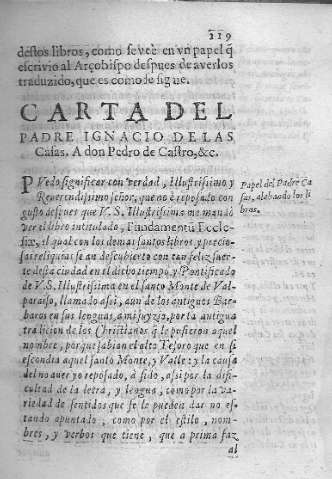 219
destos libros, como se vee en vn papel q̃
escrivio al Arçobispo despues de averlos
traduzido, que es como se sigue.
CARTA DEL
PADRE IGNACIO DE LAS
Casas. A don Pedro de Castro, &c.
PVedo significar con verdad, Illustrissimo y
Reverendissimo señor, que no è reposado con
gusto despues que V. S. Illustrissima me mandò
ver el libro intitulado, Fundamentũ Eccle-
siæ, el qual con los demas santos libros, y precio-
sas reliquias se an descubierto con tan feliz suer-
te desta ciudad en el dicho tiempo, y Pontificado
de V. S. Illustrissima en el santo Monte de Val-
paraiso, llamado assi, aun de los antiguos Bar-
baros en sus lenguas, a mi juyzio, por la antigua
tradicion de los Christianos q̃ le pusieron aquel
nombre, porque sabian el alto Tesoro que en si
escondia aquel santo Monte, y Valle: y la causa
del no aver yo reposado, à sido, assi por la difi-
cultad de la letra, y lengua, como por la va-
riedad de sentidos que se le pueden dar no es-
tando apuntado, como por el estilo, nom-
bres, y verbos que tiene, que a prima faz
al
Papel del Padre Ca
sas, alabando los li
bros.